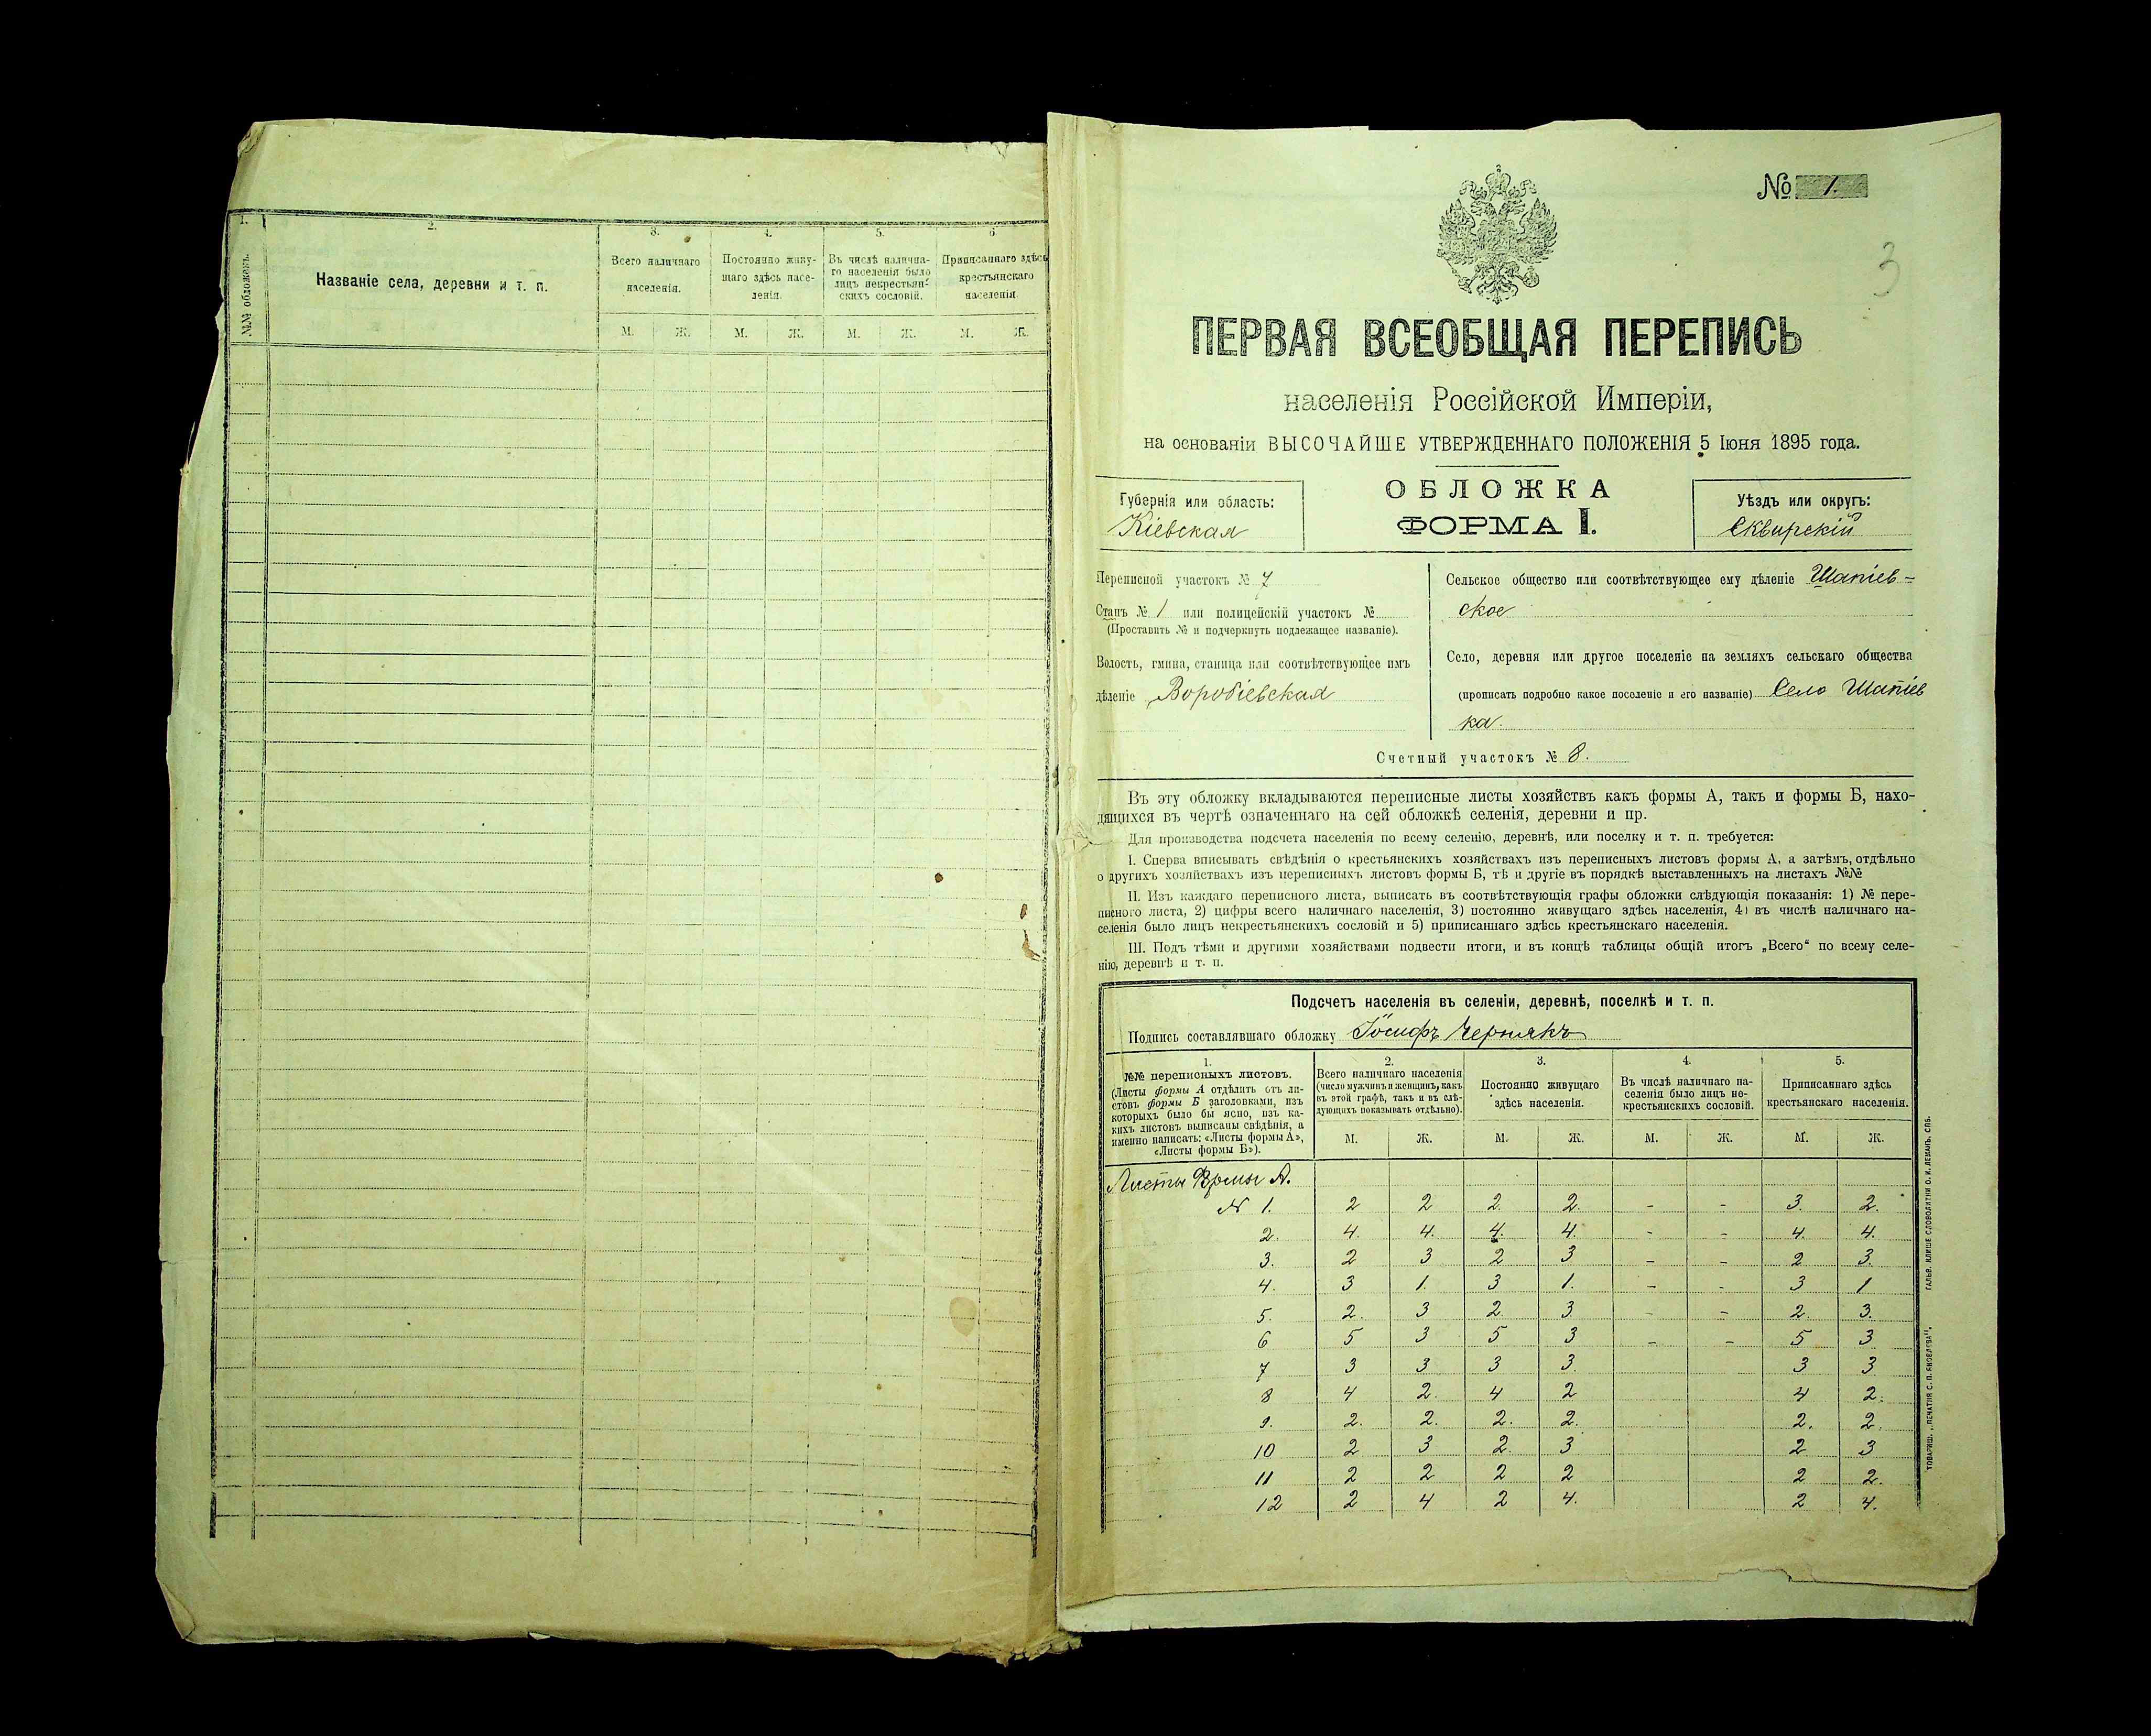 1.
2.
3.
4.
5.
6
№№ обложекъ.
Названіе села, деревни и т. п.
Всего наличнаго
населенія.
Постоянно живу-
щаго здѣсь насе-
ленія.
Въ числѣ налична-
го населенія было
лицъ некрестьян-
скихъ сословій.
Приписаннаго здѣсь
крестьянскаго
населенія
М. Ж. М. Ж. М. Ж. М. Ж.
№ 1.
3
ПЕРВАЯ ВСЕОБЩАЯ ПЕРЕПИСЬ
населенія Россійской Имперіи,
на основаніи ВЫСОЧАЙШЕ УТВЕРЖДЕННАГО ПОЛОЖЕНІЯ 5 Іюня 1895 года.
Губернія или область:
Кіевская
ОБЛОЖКА
ФОРМА I.
Уѣздъ или округъ:
Сквирскій
Переписной участокъ № 7
Станъ № 1 или полицейскій участокъ №
(Проставить № и подчеркнуть подлежащее названіе).
Волость, гмина, станица или соотвѣтствующее имъ
дѣленіе Воробіевская
Сельское общество или соотвѣтствующее ему дѣленіе Шапіев-
ское
Село, деревня или другое поселеніе на земляхъ сельскаго общества
(прописать подробно какое поселеніе и его названіе) Село Шапіев
ка.
Счетный участокъ № 8.
Въ эту обложку вкладываются переписные листы хозяйствъ какъ формы А, такъ и формы Б, нахо-
дящихся въ чертѣ означеннаго на сей обложкѣ селенія, деревни и пр.
Для производства подсчета населенія по всему селенію, деревнѣ, или поселку и т. п. требуется:
I. Сперва вписывать свѣдѣнія о крестьянскихъ хозяйствахъ изъ переписныхъ листовъ формы А, а затѣмъ, отдѣльно
о другихъ хозяйствахъ изъ переписныхъ листовъ формы Б, тѣ и другіе въ порядкѣ выставленныхъ на листахъ №№
II. Изъ каждаго переписного листа, выписать въ соотвѣтствующія графы обложки слѣдующія показанія: 1) № пере-
писного листа, 2) цифры всего наличнаго населенія, 3) постоянно живущаго здѣсь населенія, 4) въ числѣ наличнаго на-
селенія было лицъ некрестьянскихъ сословій и 5) приписаннаго здѣсь крестьянскаго населенія.
III. Подъ тѣми и другими хозяйствами подвести итоги, и въ концѣ таблицы общій итогъ „Всего“ по всему селе-
нію, деревнѣ и т. п.
Подсчетъ населенія въ селеніи, деревнѣ, поселкѣ и т. п.
Подпись составлявшаго обложку Іосифъ Чернякъ
1.
№№ переписныхъ листовъ.
(Листы формы А отдѣлить отъ ли-
стовъ формы Б заголовками, изъ
которыхъ было бы ясно, изъ ка-
кихъ листовъ выписаны свѣдѣнія, а
именно написать: «Листы формы А»,
«Листы формы Б»).
2.
Всего наличнаго населенія
(число мужчинъ и женщинъ, какъ
въ этой графѣ, такъ и въ слѣ-
дующихъ показывать отдѣльно).
3.
Постоянно живущаго
здѣсь населенія.
4.
Въ числѣ наличнаго на-
селенія было лицъ не-
крестьянскихъ сословій.
5.
Приписаннаго здѣсь
крестьянскаго населенія.
М. Ж. М. Ж. М. Ж. М. Ж.
Листы Формы А.
№ 1. 2 2 2. 2. - - 3. 2.
2. 4. 4. 4. 4. - - 4. 4.
3. 2 3 2 3 - - 2 3.
4. 3 1. 3 1. - - 3 1
5. 2. 3 2. 3 - - 2. 3.
6 5 3 5 3 - - 5 3
7 3 3 3 3 3 3
8 4 2. 4 2 4 2.
9. 2. 2. 2. 2. 2. 2.
10 2 3 2. 3 2 3
11 2 2 2 2 2 2.
12 2 4 2 4. 2 4.